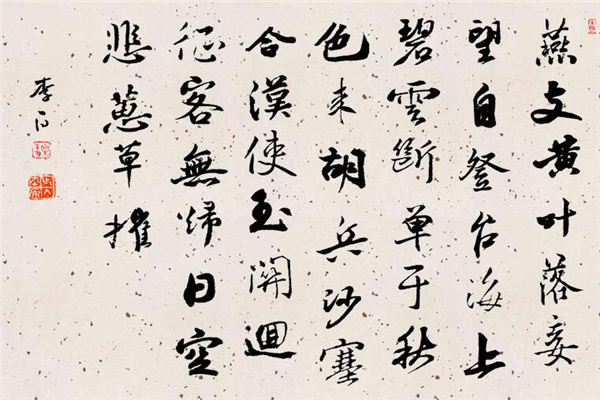 燕支黄叶落妾
望自登台海上
碧雲斷单于秋
色来胡兵沙塞
合漢使玉關迴
征客無歸日空
悲蕙草摧
李白